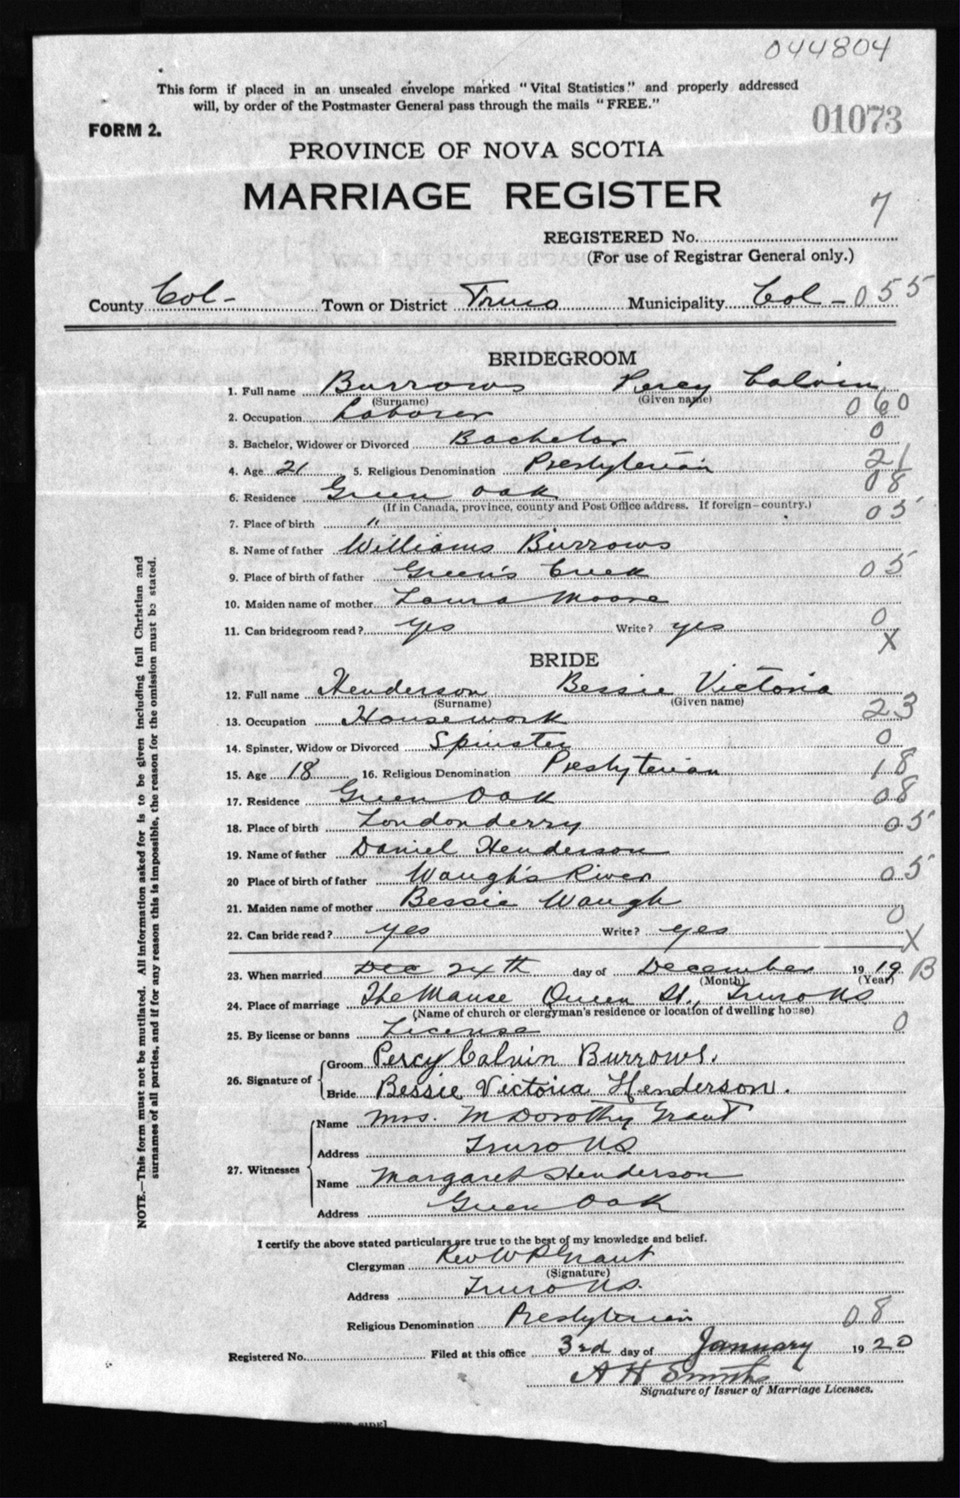 044804
This form if placed in an unsealed envelope marked "Vital Statistics" and properly addressed
will, by order of the Postmaster General pass through the mails "FREE."
FORM 2.
01073
PROVINCE OF NOVA SCOTIA
MARRIAGE REGISTER
7
REGISTERED No.
(For use of Registrar General only.)
County Col- Town or District Truro Municipality Col- 055
BRIDEGROOM
1. Full name Burrows Percy Calvin
(Surname) (Given name)
2. Occupation Laborer 060
3. Bachelor, Widower or Divorced Bachelor 0
4. Age 21 5. Religious Denomination Presbyterian 21
6. Residence Green Oak 08
(If in Canada, province, county and Post Office address. If foreign—country.)
7. Place of birth " 05
8. Name of father Williams Burrows
9. Place of birth of father Green's Creek 05
10. Maiden name of mother Laura Moore
11. Can bridegroom read? yes Write? yes 0
X
BRIDE
12. Full name Henderson Bessie Victoria
(Surname) (Given name)
13. Occupation Housework 23
14. Spinster, Widow or Divorced Spinster 0
15. Age 18 16. Religious Denomination Presbyterian 18
17. Residence Green Oak 08
18. Place of birth Londonderry 05
19. Name of father Daniel Henderson
20 Place of birth of father Waugh's River 05
21. Maiden name of mother Bessie Waugh
22. Can bride read? yes Write? yes 0
X
23. When married Dec 24th day of December 1919 B
(Month) (Year)
24. Place of marriage The Manse Queen St., Truro NS
(Name of church or clergyman's residence or location of dwelling house)
25. By license or banns License 0
26. Signature of Groom Percy Calvin Burrows.
Bride Bessie Victoria Henderson.
27. Witnesses Name Mrs. M Dorothy Grant
Address Truro NS
Name Margaret Henderson
Address Green Oak
I certify the above stated particulars are true to the best of my knowledge and belief.
Clergyman Rev W P Grant
(Signature)
Address Truro NS.
Religious Denomination Presbyterian 08
Registered No. Filed at this office 3rd day of January 1920
A H Smith
Signature of Issuer of Marriage Licenses.
NOTE.—This form must not be mutilated. All information asked for is to be given including full Christian and
surnames of all parties, and if for any reason this is impossible, the reason for the omission must be stated.